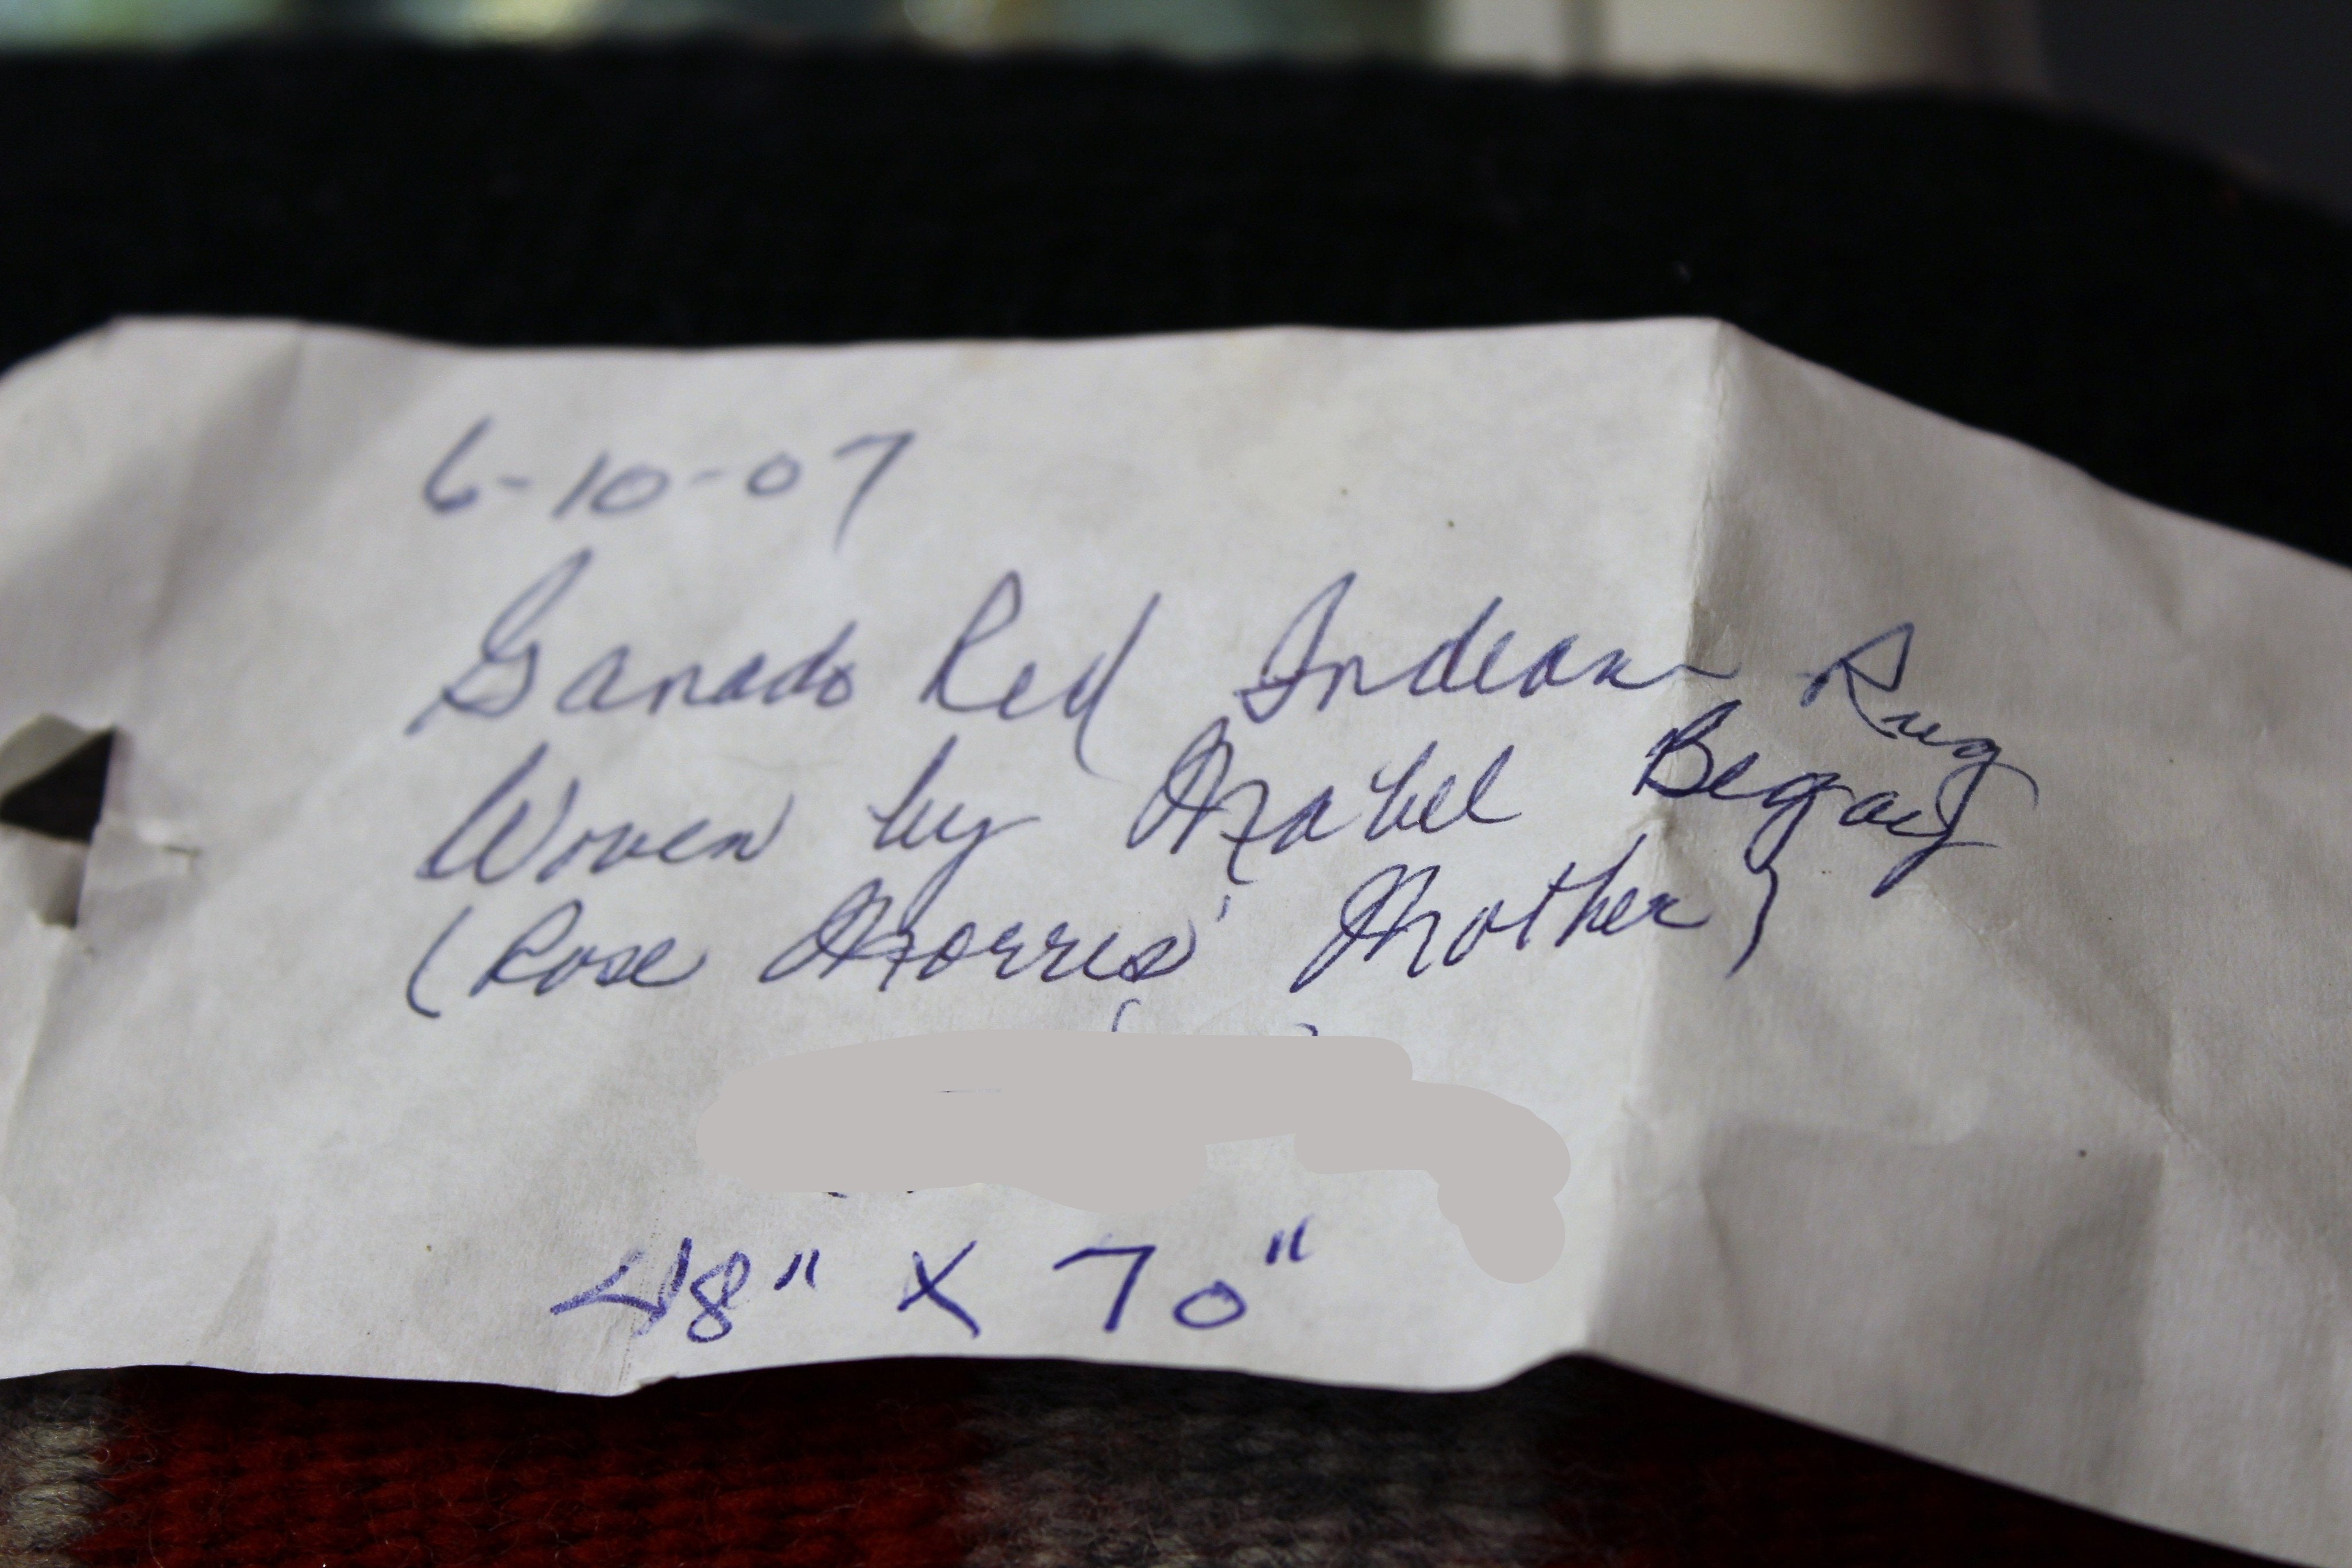 6-10-07
Ganado Red Indian Rug
Woven by Mabel Begay
(Rose Morris' Mother)
48" X 70"